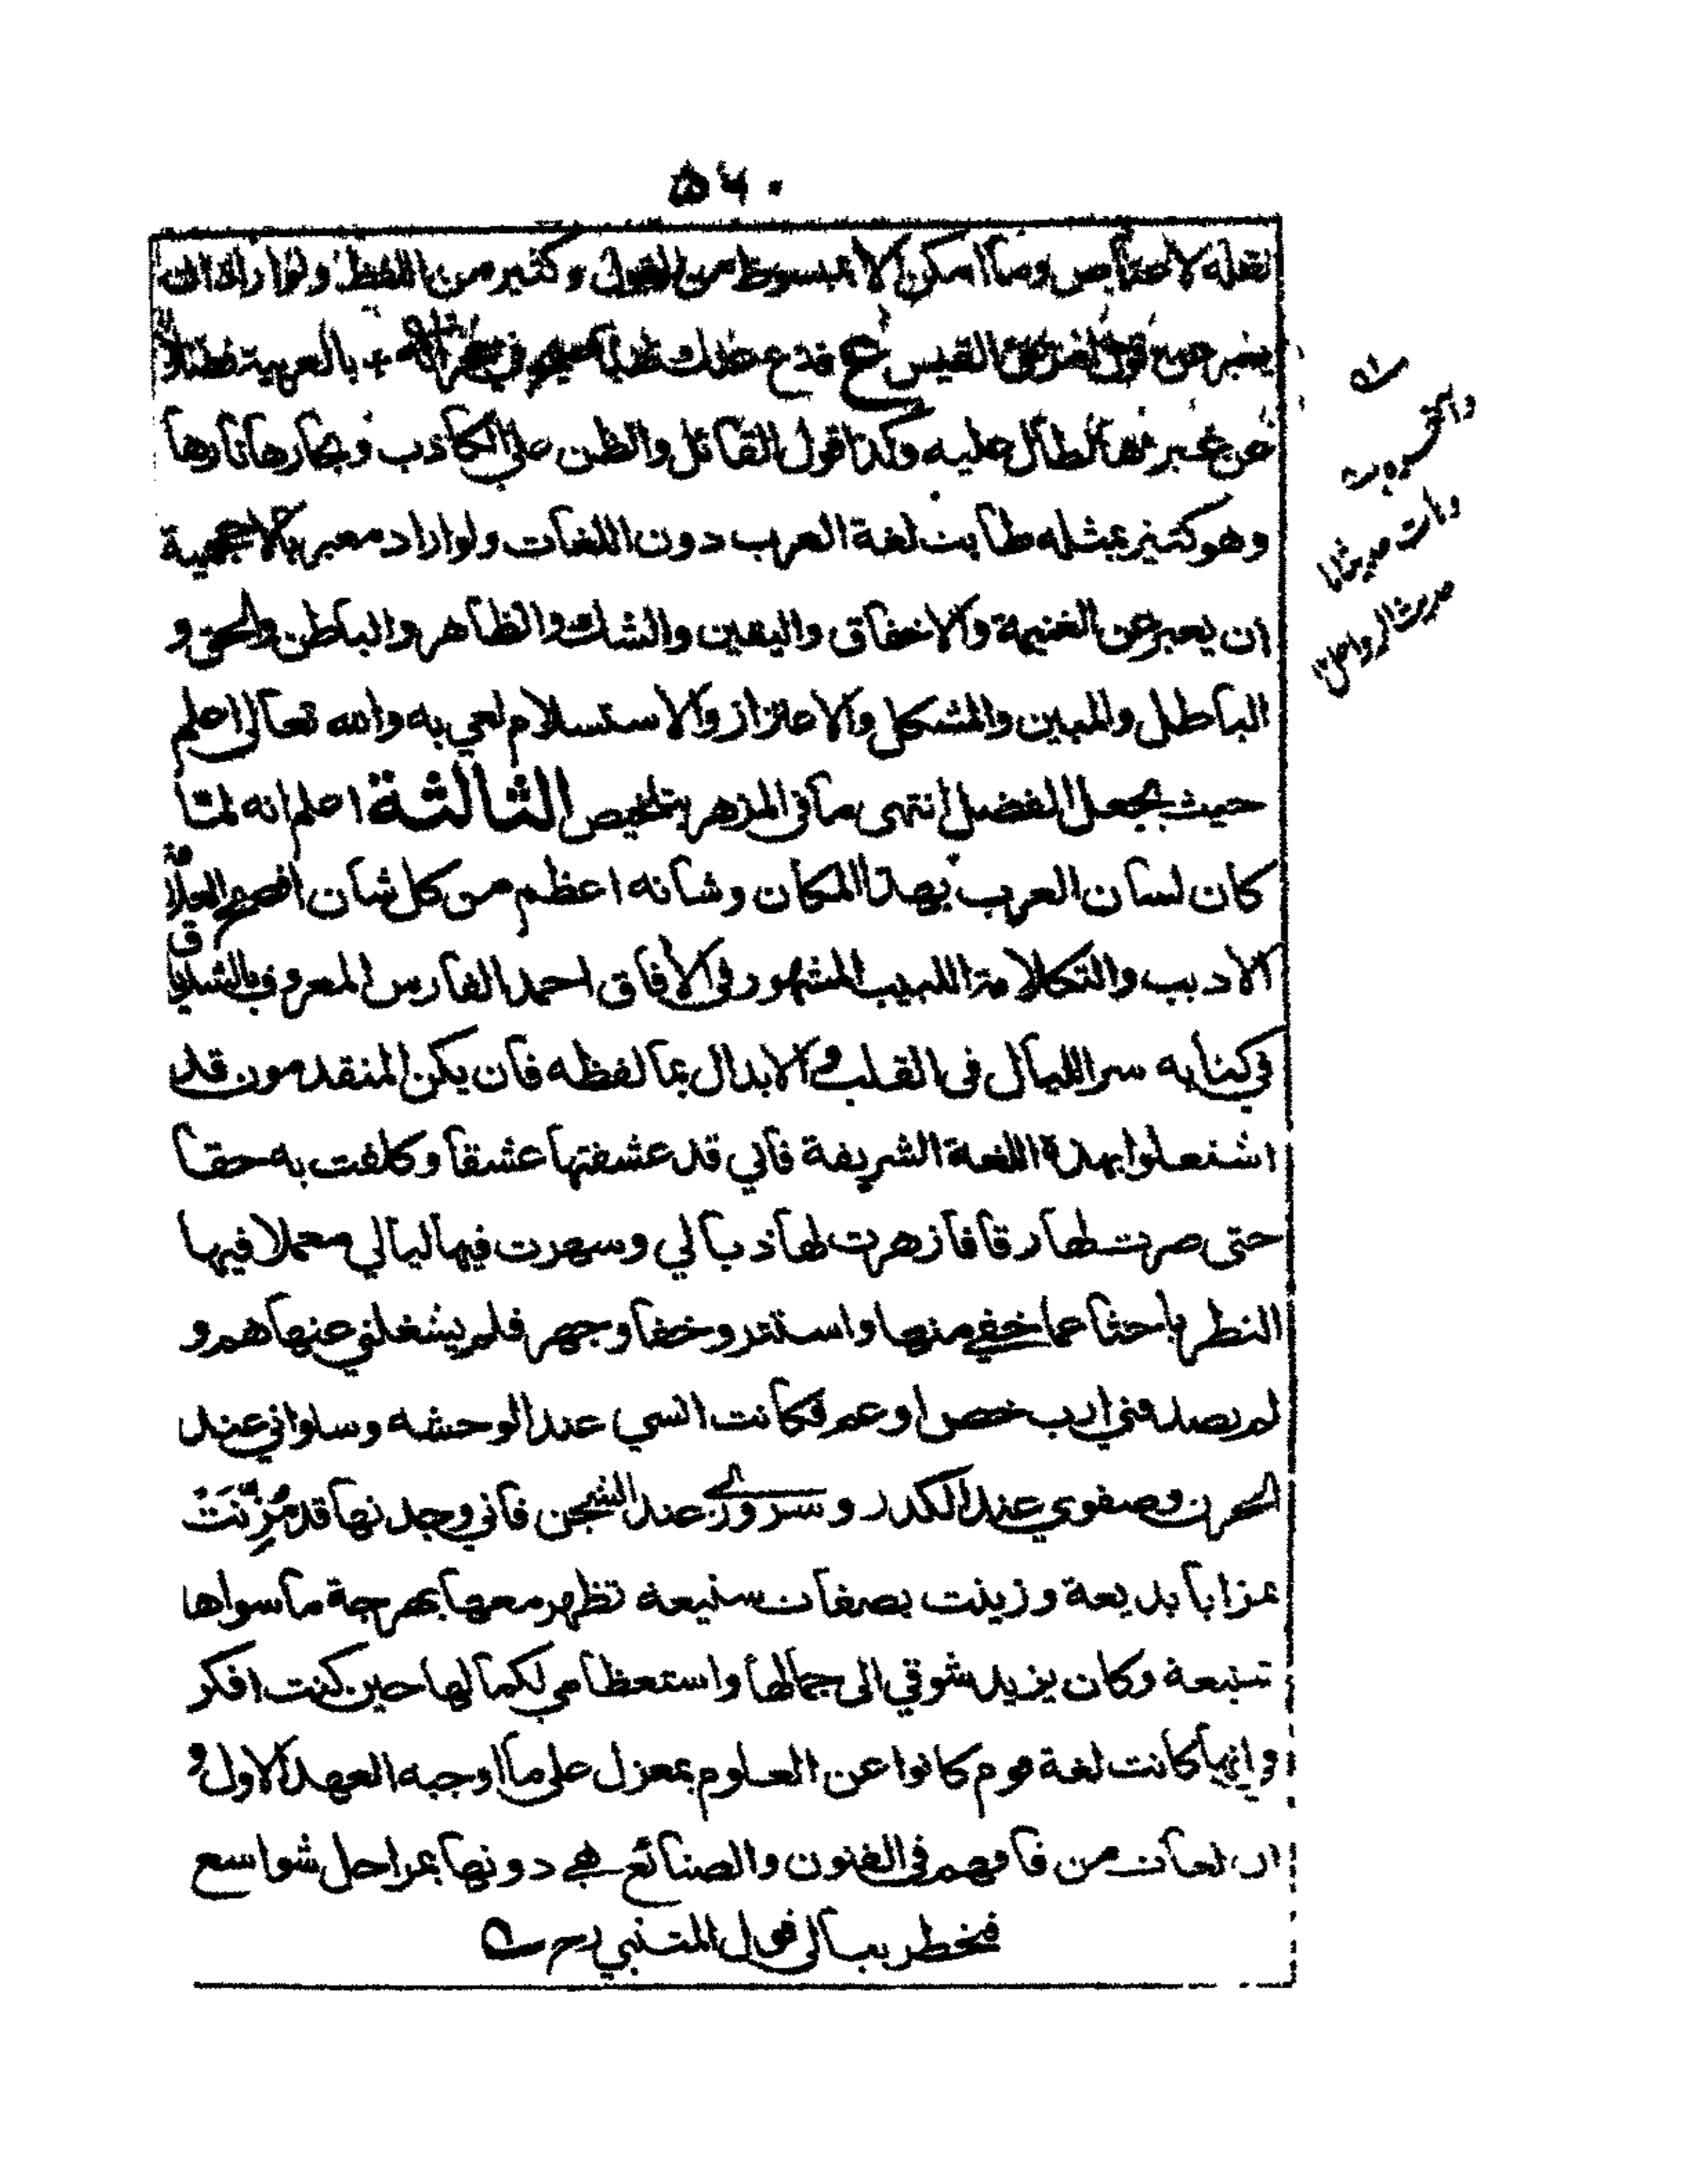 ٥٦٠
نقله لا صتايص وما امكن الا بمبسوط من القول وكثير من اللفظ ولو اراد ان
يعبر عن قول امرئ القيس ع فدع عنك نهبا صيح في حجراته بالعربية فضلا
عن غيرها لطال عليه وكذا قول القائل والظن على الكاذب ونجارها نارها
وهو كثير بمثله طابت لغة العرب دون اللغات ولو اراد معبر بالاعجمية
ان يعبر عن الغنيمة والاخفاق واليقين والشك والظاهر والباطن والحق و
الباطل والمبين والمشكل والاعتزاز والاستسلام لعي به والله تعالى اعلم
حيث يجعل الفضل انتهى ما في المزهر بتلخيص الثالثة اعلم انه لما
كان لسان العرب بهذا المكان وشانه اعظم من كل شان افصح العلامة
الاديب والتكلامة اللبيب المشهور في الافاق احمد الفارس المعروف بالشدياق
في كتابه سر الليال في القلب والابدال بما لفظه فان يكن المتقدمون قد
اشتغلوا بهذه اللغة الشريفة فاني قد عشقتها عشقا وكلفت به حقا
حتى صرت لها رقا فازهرت لها ذبالي وسهرت فيها ليالي معملا فيها
النظر باحثا عما خفي منها واستتر وخفا وجهر فلم يشغلني عنها هم و
لم يصدفني ارب خص او عم فكانت انسي عند الوحشه وسلواني عند
الحزن وصفوي عند الكدر وسروري عند الشجن فاني وجدتها قد مُزِّنَتْ
بمزايا بديعة وزينت بصفات سنيعه تظهر معها بهرجة ما سواها
شنيعة وكان يزيد شوقي الى جمالها واستعظامي لكمالها حين كنت افكر
في انها كانت لغة قوم كانوا عن العلوم بمعزل على ما اوجبه العهد الاول و
ان لغات من فاقهم في الفنون والصنائع هي دونها بمراحل شواسع
فخطر ببالي قول المتنبي رح